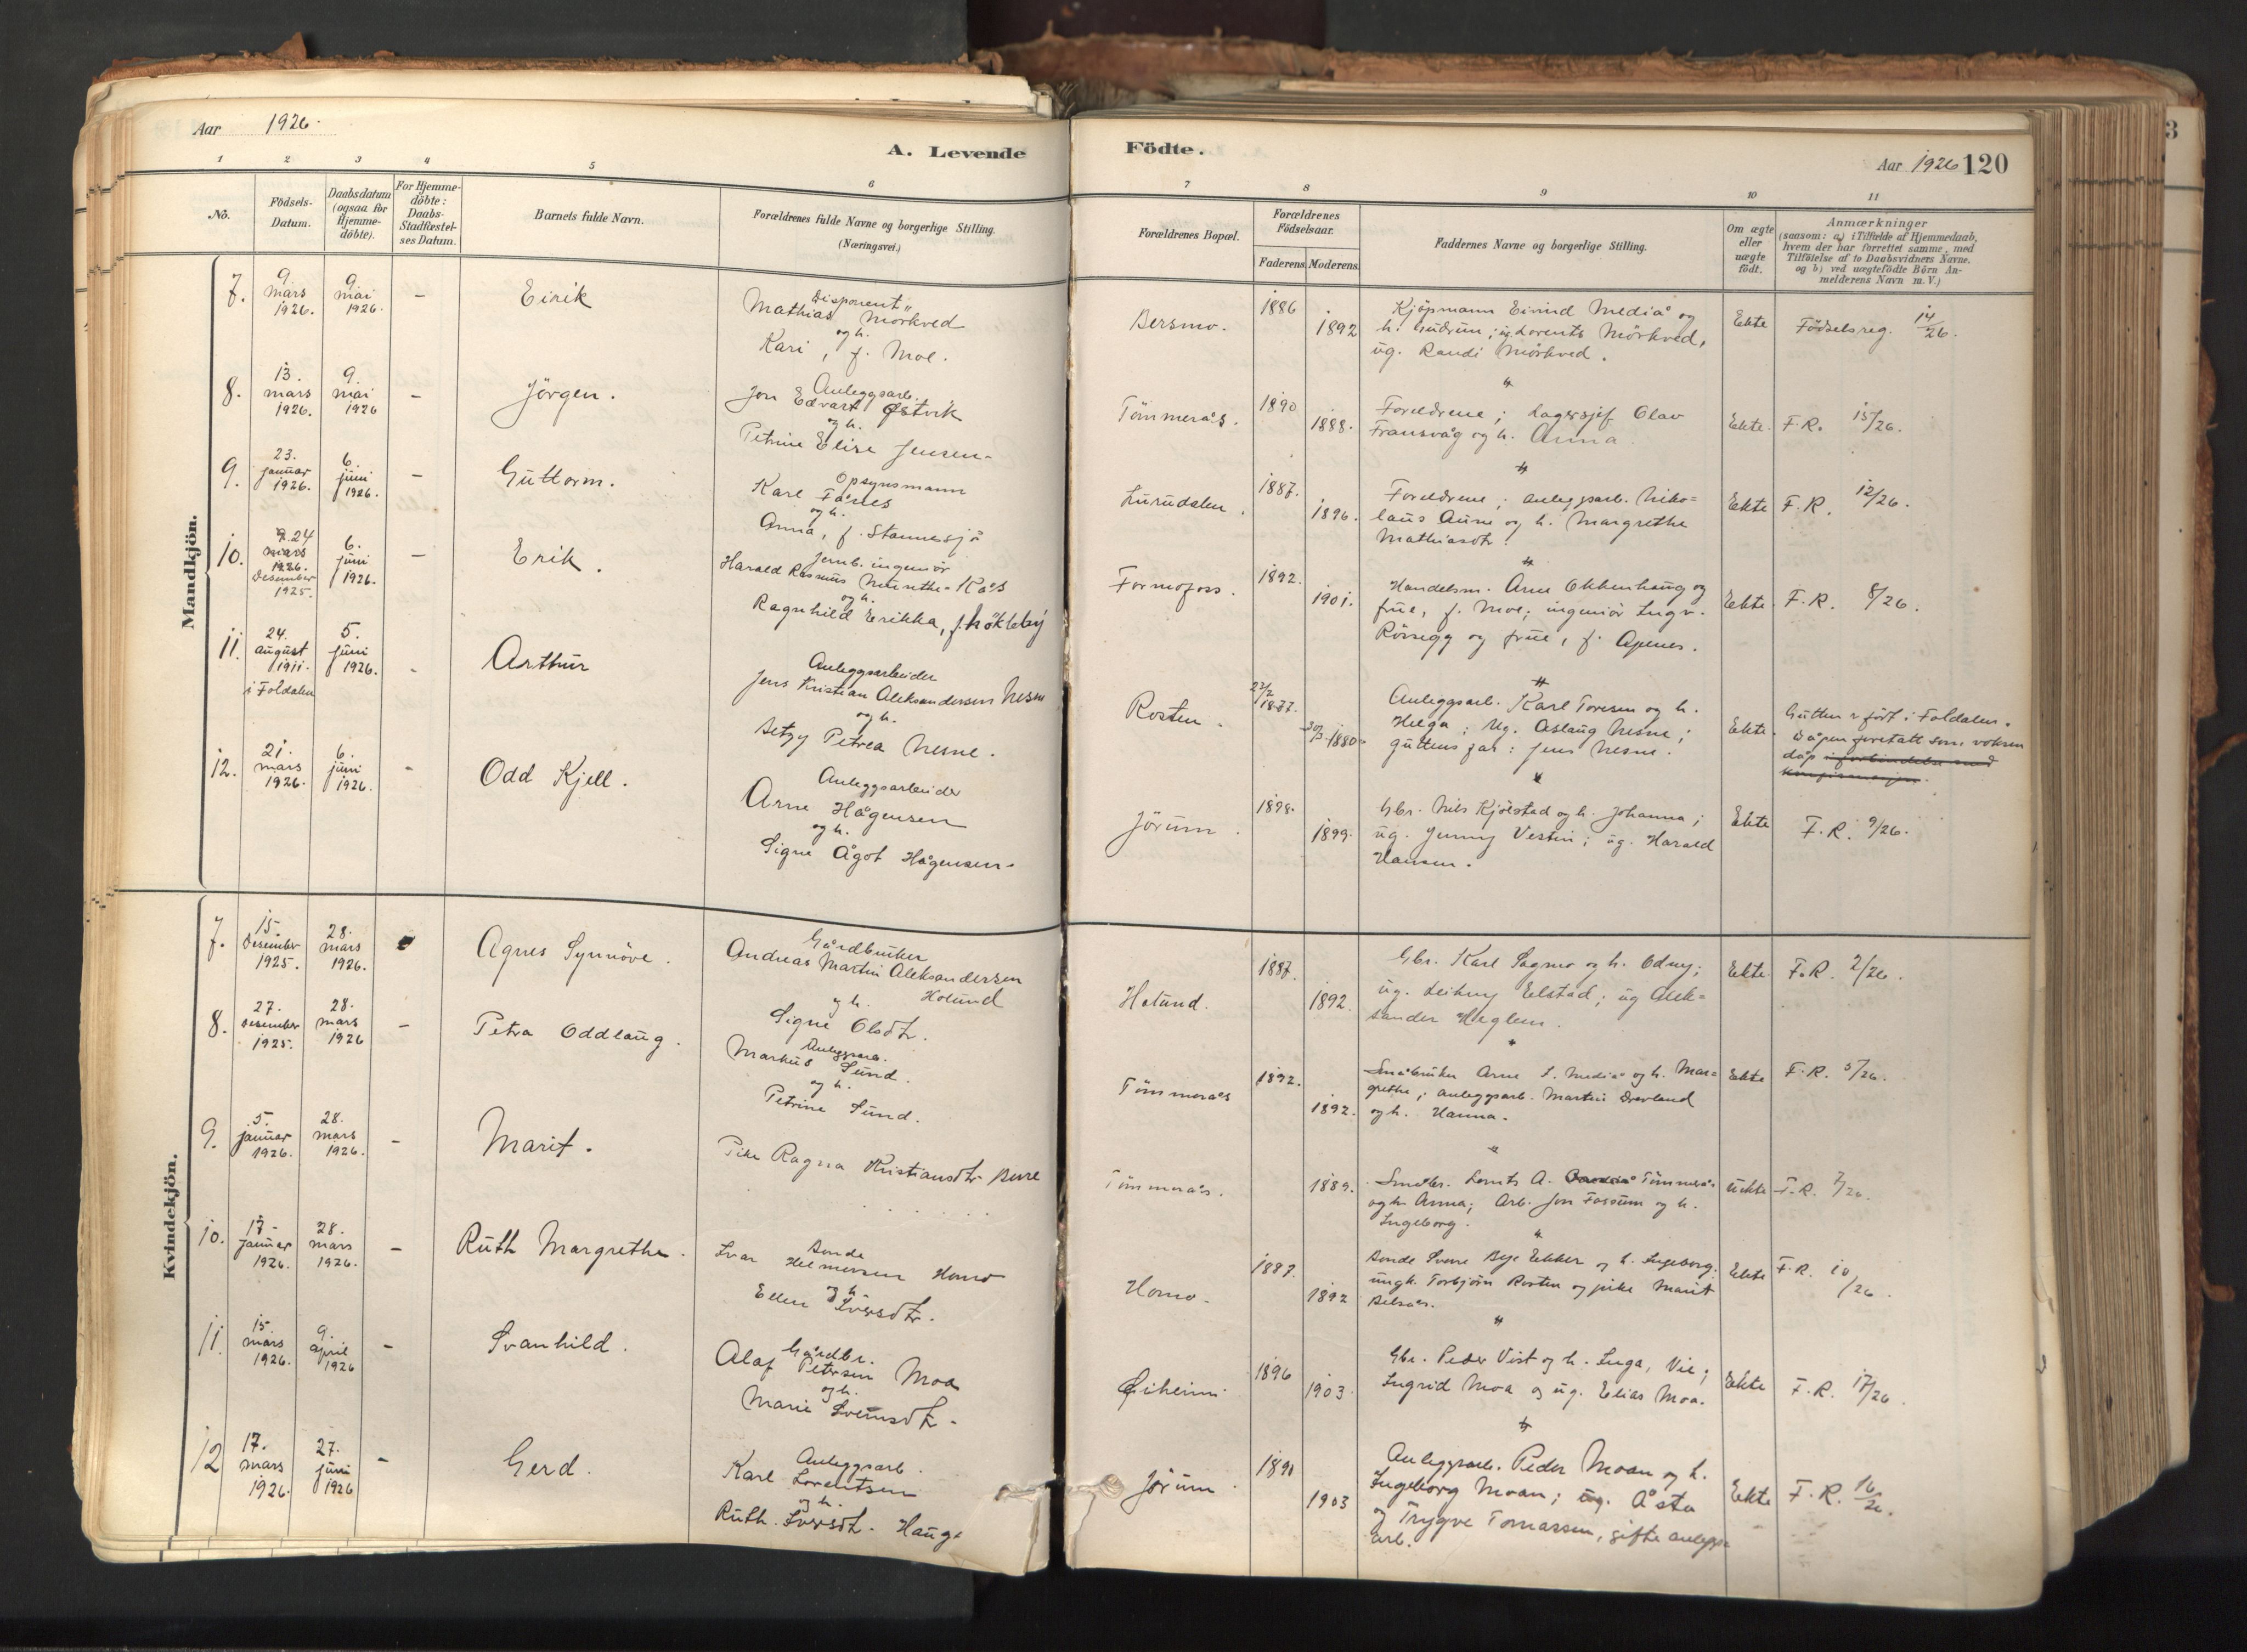 Aar 1926.
A. Levende
Födte.
Aar 1926 120
1 2 3 4 5 6 7 8 9 10 11
No.
Födsels-
Datum.
Daabsdatum
(ogsaa for
Hjemme-
döbte).
For Hjemme-
döbte:
Daabs-
Stadfæstel-
ses Datum.
Barnets fulde Navn.
Forældrenes fulde Navne og borgerlige Stilling.
(Næringsvei.)
Forældrenes Bopæl.
Forældrenes
Födselsaar.
Faderens Moderens
Faddernes Navne og borgerlige Stilling.
Om ægte
eller
uægte
födt.
Anmærkninger
(saasom: a) i Tilfælde af Hjemmedaab,
hvem der har forrettet samme, med
Tilföielse af to Daabsvidners Navne,
og b) ved uægtefödte Börn An-
melderens Navn m. V.)
Mandkjön.
7.
9
mars
1926.
9
mai
1926.
-
Eirik
Disponent
Mathias Mörkved
og h.
Kari, f. Moe.
Bersmo.
1886
1892
Kjöpmann Eivind Mediå og
h. Gudrun; ug Lorents Mörkved,
ug. Randi Mörkved.
Ekte
Födselsreg. 14/26.
8.
13.
mars
1926.
9.
mai
1926
-
Jörgen.
Anleggsarb.
Jon Edvart Østvik
og h.
Petrine Elise Jensen-
Tömmerås.
1890
1888.
Foreldrene; Lagersjef Olav
Fransvåg og h. Anna.
Ekte.
F.R. 15/26.
9.
23.
januar
1926.
6.
juni
1926.
-
Guttorm.
Opsynsmann
Karl Fånes
og h.
Anna, f. Stamnesjö
Lurudalen.
1887.
1896.
Foreldrene; anleggsarb. Niko=
laus Aune og h. Margrethe
Mathiasdtr.
Ekte
F.R. 12/26.
10.
24
mars
1926.
Desember
1925.
6.
juni
1926.
-
Erik.
Jernb. ingeniör
Harald Rasmus Munthe-Kås
og h.
Ragnhild Erikka, f. Kökleby
Formofoss.
1892.
1901.
Handelsm. Arne Okkenhaug og
frue, f. Moe; ingeniör Ingv.
og frue, f. Apenes.
Ekte.
F.R. 8/26.
11.
24.
august
1911.
i Foldalen
5.
juni
1926.
-
Arthur
Anleggsarbeider
Jens Kristian Aleksandersen Nesne
og h.
Petrea Nesne.
Rosten.
22/2
1877.
1880
Anleggsarb. Karl Toresen og h.
Helga; ug. Aslaug Nesne;
guttens far: Jens Nesne.
Ekte.
Gutten er födt i Foldalen.
Dåpen foretatt som voksen
dåp i forbindelse med
konfirmasjon.
12.
21.
mars
1926.
6.
juni
1926.
-
Odd Kjell.
Anleggsarbeider
Arne Hågensen
og h.
Signe Ågot Hågensen-
Jörum.
1898.
1899.
Gbr. Nils Kjölstad og h. Johanna;
ug. Jenny Vestin; ug. Harald
Hansen.
Ekte
F.R. 9/26.
Kvindekjön.
7.
15.
Desember
1925.
28.
mars
1926.
Agnes Synnöve.
Gårdbruker
Andreas Martin Aleksandersen
Holund
og h.
Signe Olsdtr.
Holund.
1887.
1892.
Gbr. Karl Sagmo og h. Odny;
ug. Elstad; ug Alek=
sander Heglem.
Ekte.
F.R. 2/26.
8.
27.
Desember
1925.
28.
mars
1926
-
Petra Oddlaug.
Anleggsarb.
Markus Sund.
og h.
Petrine Sund.
Tömmerås
1892.
1892.
Småbruker Arne L. Mediå og h. Mar=
grethe; anleggsarb. Martin Devland
og h. Hanna.
Ekte
F.R. 5/26.
9.
5.
januar
1926.
28.
mars
1926.
-
Marit.
Pike Ragna Kristiansdtr.
Tömmerås.
1889.
Småbr. Lornts A. Tömmerås
og h. Anna; Arb. Jon Fossum og h.
Ingeborg.
uekte
F.R. 7/26.
10.
17.
januar
1926.
28.
mars
1926.
-
Ruth Margrethe.
Bonde
Ivar Helmersen Homo
og h.
Ellen Iversdtr.
Homo.
1887.
1892
Bonde Sverre Bye Ekker og h. Ingeborg.
ungk. Torbjörn Rosten og pike Marit
Ekte
F.R. 10/26.
11.
15.
mars
1926.
9.
april
1926
-
Svanhild.
Gårdbr.
Olaf Petersen Moa
og h.
Marie Sveinsdtr.
1896
1903.
Gbr. Peder Vist og h. Inga, Vie;
Ingrid Moa og ug. Elias Moa.
Ekte
F.R. 17/26.
12
17.
mars
1926.
27.
juni
1926
-
Gerd.
Anleggsarb.
Karl Lorentsen
og h.
Ruth Iversdtr. Haug.
Jörum.
1890
1903
Anleggsarb. Peder Moan og h.
Ingeborg Moan; ug. Åsta
og Trygve Tomassen, gifte anleggs=
arb.
Ekte
F.R. 16/26.
3